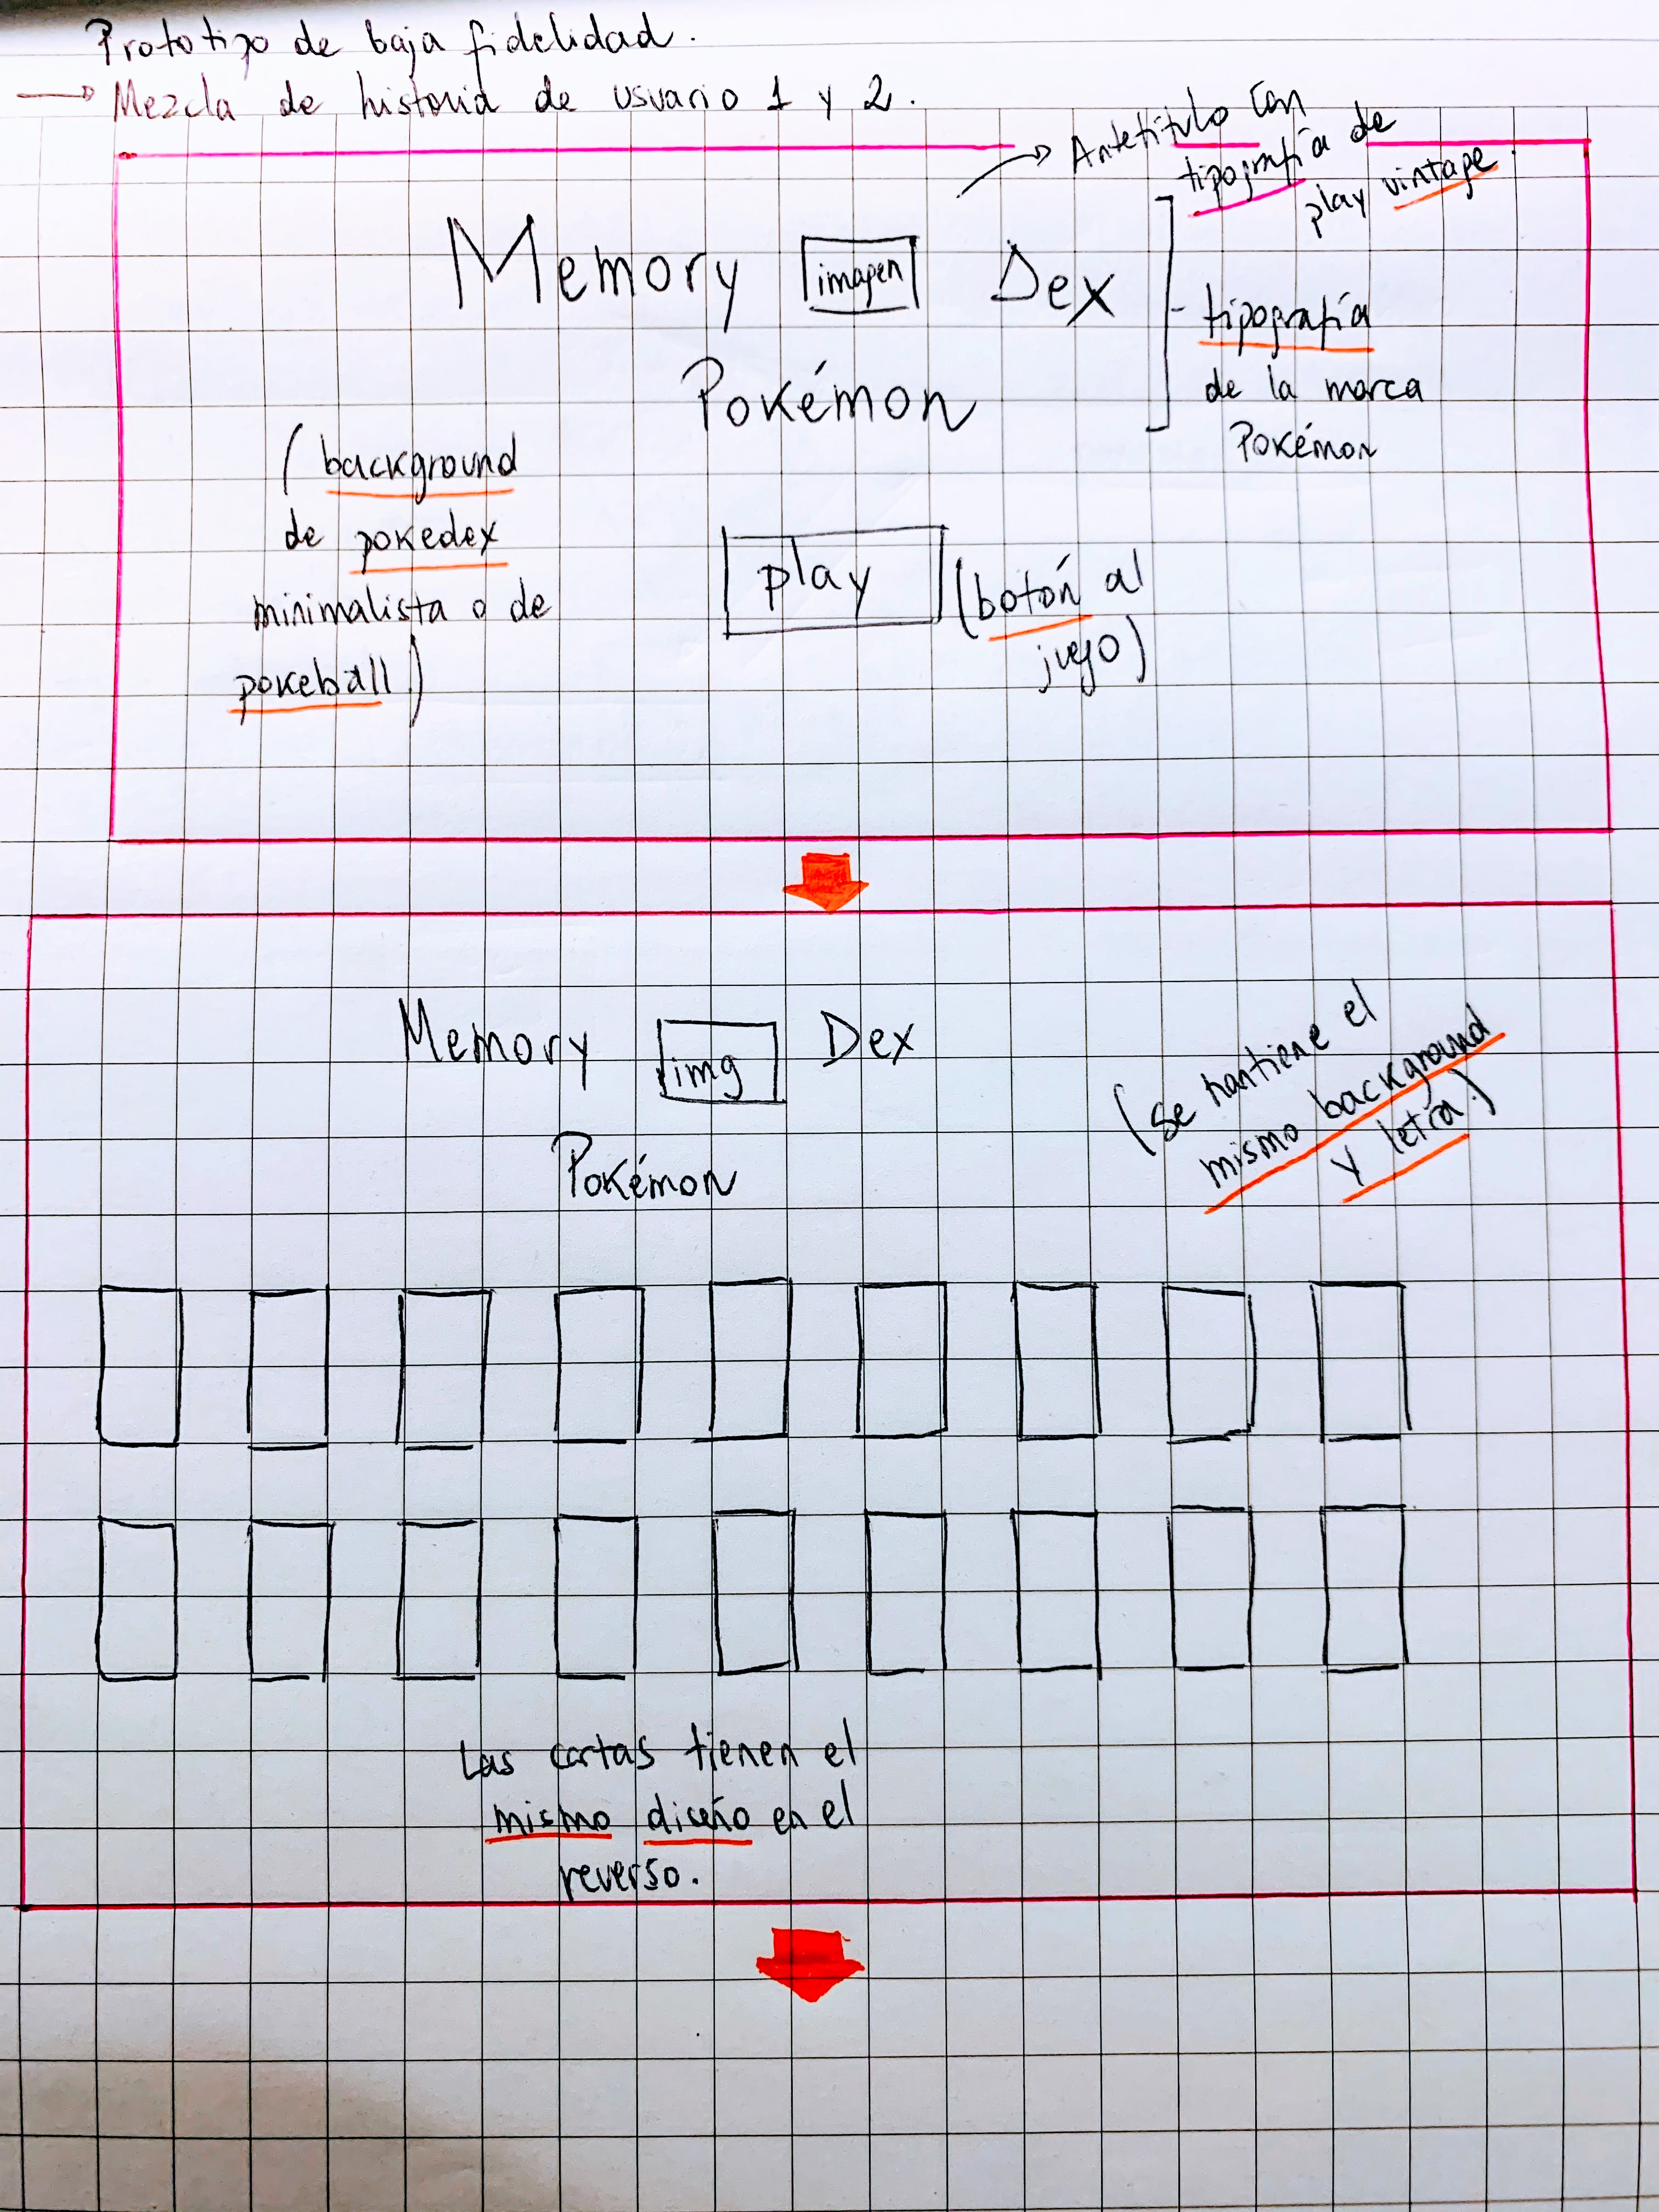 Prototipo de baja fidelidad.
→ Mezcla de historia de usuario 1 y 2.
→ Antetítulo con
tipografía de
play vintage
Memory imagen Dex
Pokémon
tipografía
de la marca
Pokémon
(background
de pokedex
minimalista o de
pokeball)
play
(botón al
juego)
Memory img Dex
Pokémon
(se mantiene el
mismo background
y letra.)
Las cartas tienen el
mismo diseño en el
reverso.